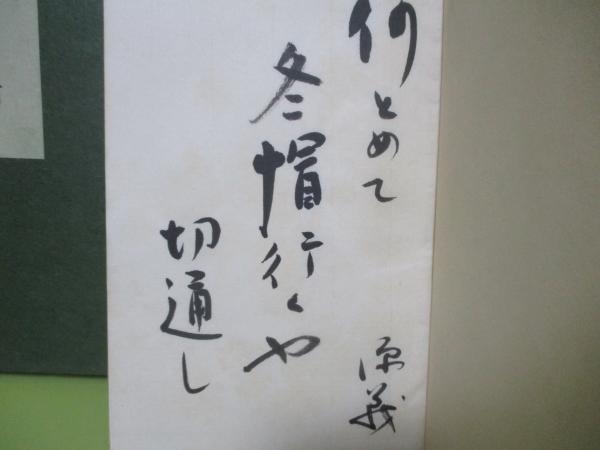 何とめて
冬帽行くや
切通し
源義